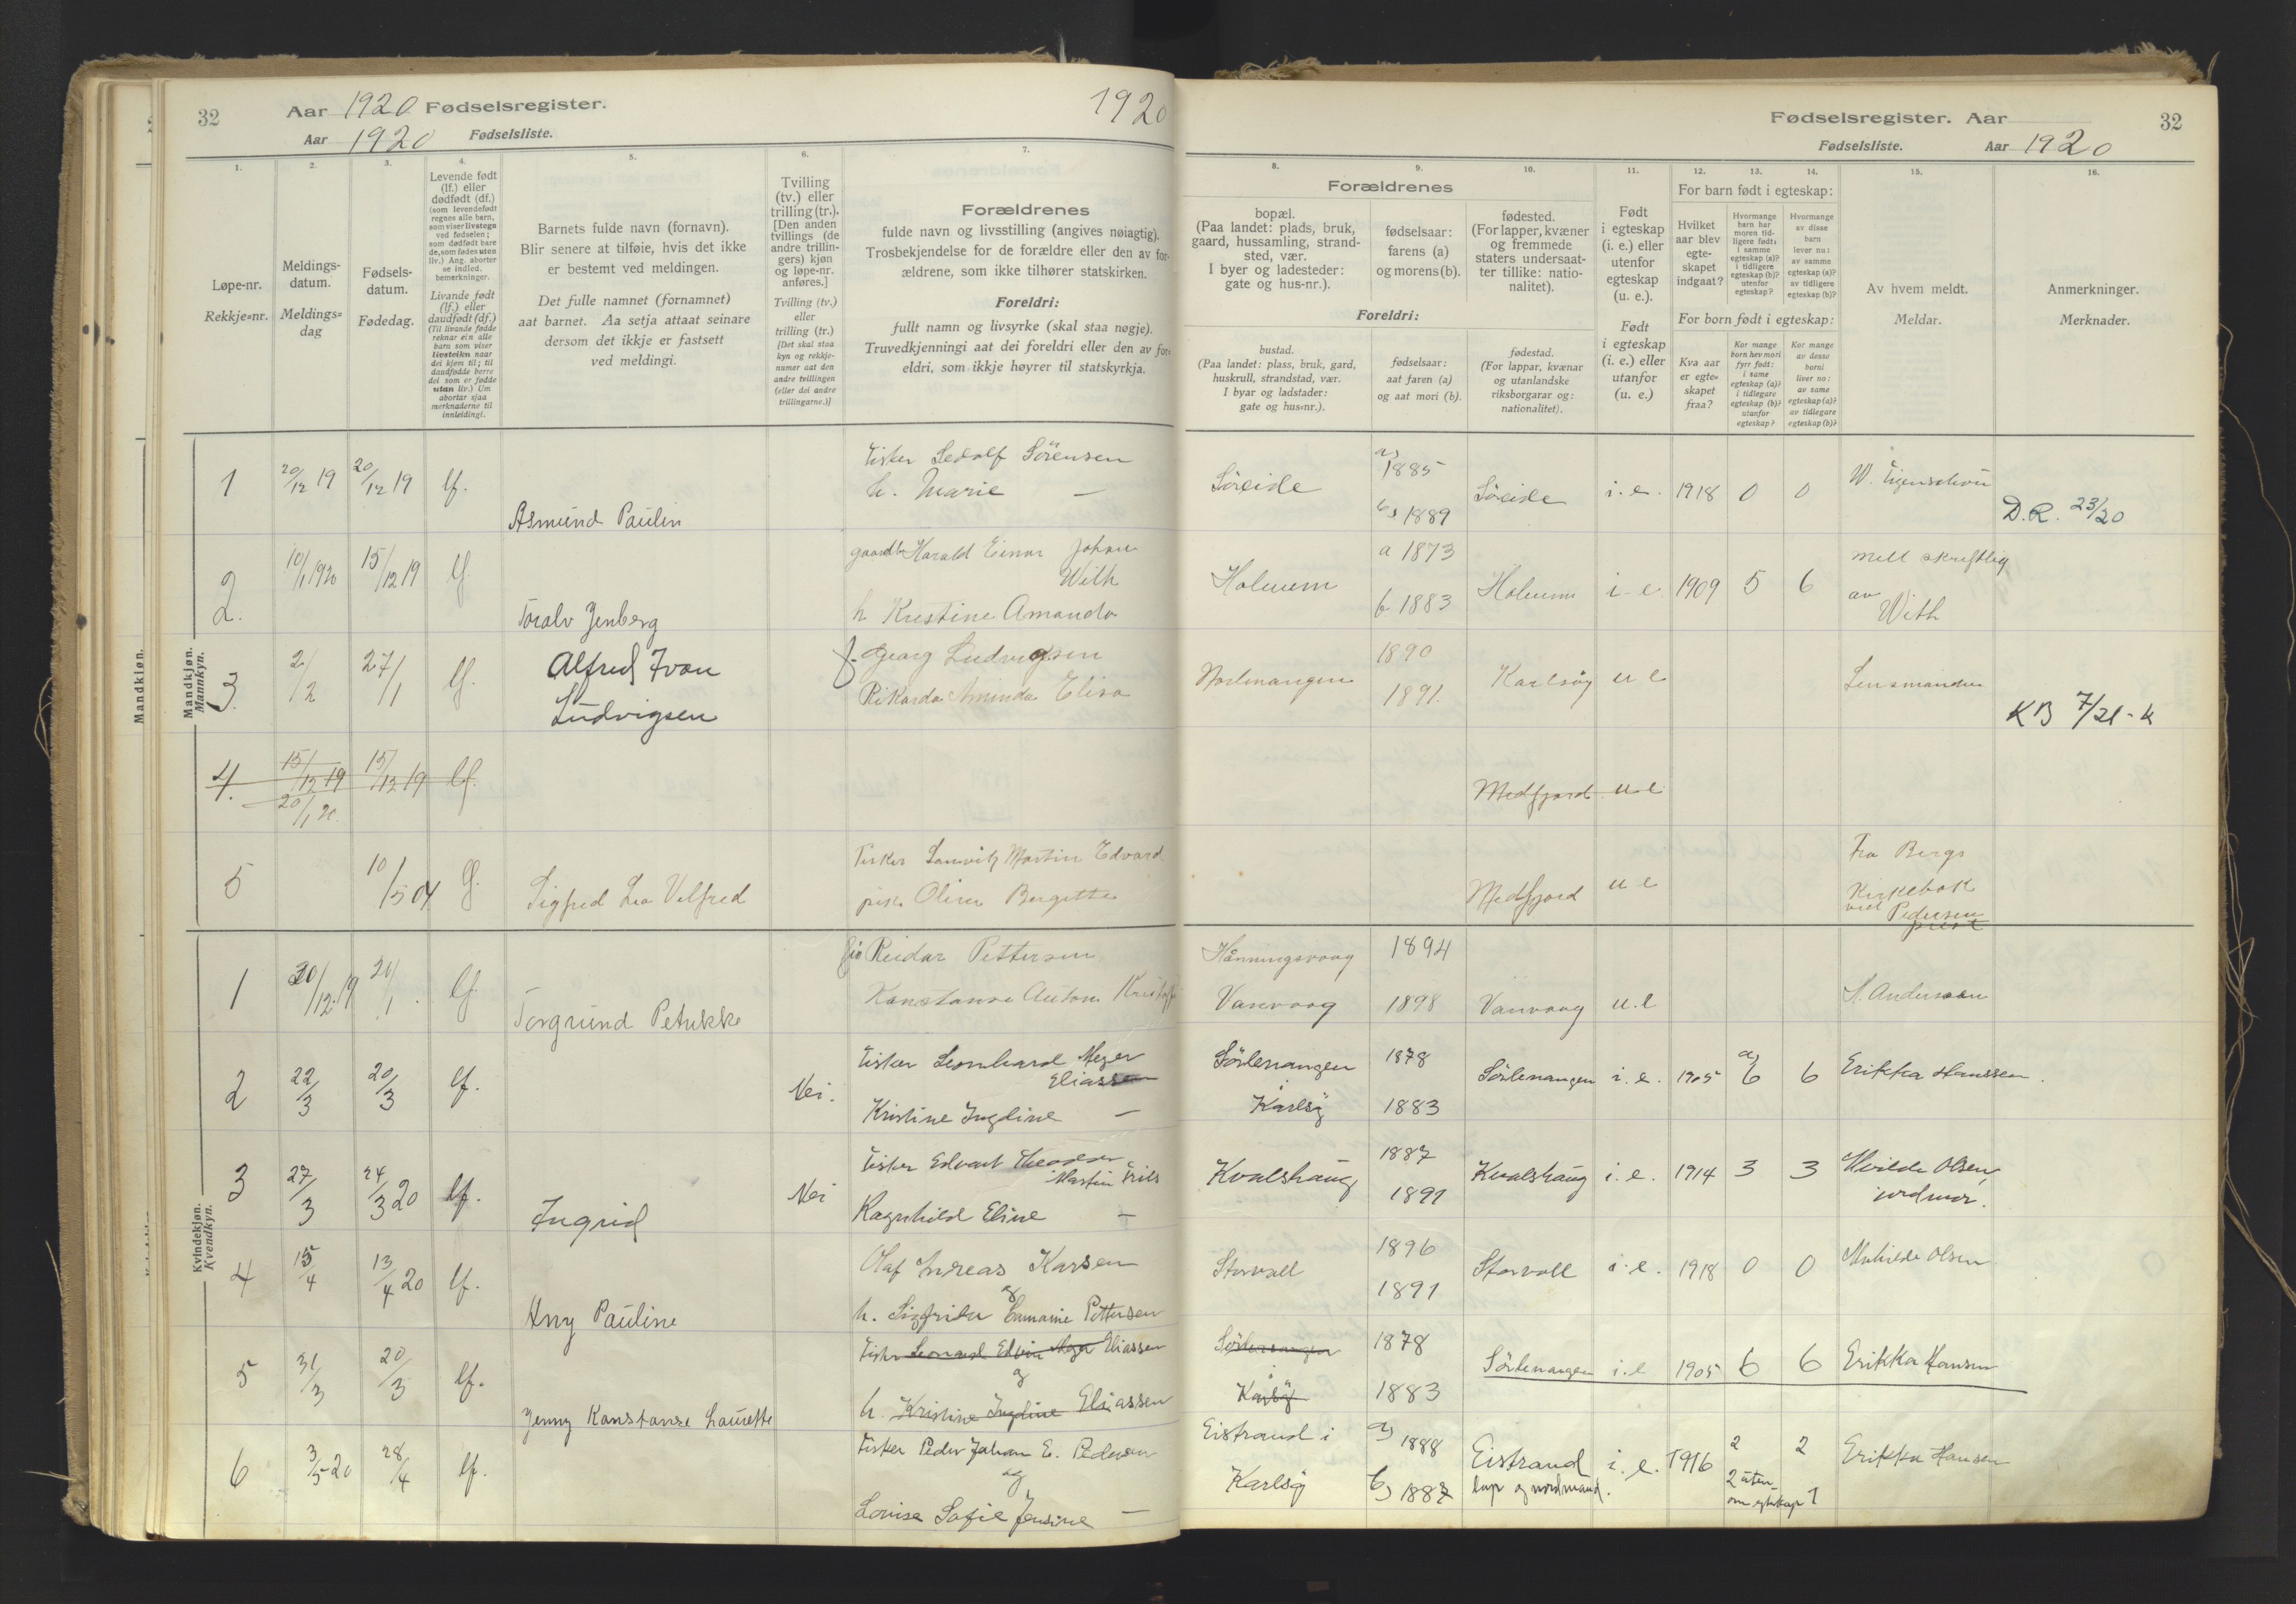 32
Aar 1920 Fødselsregister.
1920
Aar 1920 Fødselsliste.
1.
2.
3.
4.
5.
6.
7.
Løpe-nr.
Rekkje=nr.
Meldings-
datum.
Meldings=
dag
Fødsels-
datum.
Fødedag.
Levende født
(lf.) eller
dødfødt (df.)
(som levendefødt
regnes alle barn,
som viser livstegn
ved fødselen;
som dødfødt bare
de, som fødes uten
liv.) Ang. aborter
se indled.
bemerkninger.
Livande født
(lf.) eller
daudfødt (df.)
(Til livande fødde
reknar ein alle
barn som viser
livsteikn naar
dei kjem til; til
daudfødde berre
dei som er fødde
utan liv.) Um
abortar sjaa
merknaderne til
innleidingi.
Barnets fulde navn (fornavn).
Blir senere at tilføie, hvis det ikke
er bestemt ved meldingen.
Det fulle namnet (fornamnet)
aat barnet. Aa setja attaat seinare
dersom det ikkje er fastsett
ved meldingi.
Tvilling
(tv.) eller
trilling (tr.).
[Den anden
tvillings (de
andre trillin-
gers) kjøn
og løpe-nr.
anføres.]
Tvilling (tv.)
eller
trilling (tr.)
[Det skal staa
kyn og rekkje-
numer aat den
andre tvillingen
(eller dei andre
trillingarne.)]
Forældrenes
fulde navn og livsstilling (angives nøiagtig).
Trosbekjendelse for de forældre eller den av for-
ældrene, som ikke tilhører statskirken.
Foreldri:
fullt namn og livsyrke (skal staa nøgje).
Truvedkjenningi aat dei foreldri eller den av for-
eldri, som ikkje høyrer til statskyrkja.
Mandkjøn.
Mandkjøn.
Mannkyn.
1 20/12 19 20/12 19 lf.
Asmund Paulin
Fisker Ledolf Sörensen
h. Marie —
2. 10/1 1920 15/12 19 lf
Toralv Jenberg
gaardbr Harald Einar Johan
With
h Kristine Amanda
3. 2/2 27/1 lf.
Alfred Ivan
Ludvigsen
f. Georg Ludvigsen
Rikarda Aminda Elisa
4. 15/12 19 15/12 19 lf.
20/1 20.
5 10/5 04 lf.
Sigfred Leo Velfred
Fisker Lauvitz Martin Edvard
pike Oline Bergitte
Kvindekjøn.
Kvendkyn.
1 30/12 19 20/1 lf.
Torgrund Petrikke
Reidar Pettersen
Konstanse Anton
2 22/3 20/3 lf. Nei.
Fisker Leonhard Meyer
Eliassen
Kristine Ingdine —
3 27/3 24/3 20 lf. Nei
Ingrid
Fisker Edvart
Martin
Ragnhild Eline —
4 15/4 13/4 20 lf.
Any Pauline
Olaf Andreas Karsen
og
h. Sigfrida Emanie Pettersen
5 31/3 20/3 lf.
Jenny Konstanse Laurette
Fisker Leonard Edvin Meyer Eliassen
og
h. Kristine Ingdine Eliassen
6 3/5 20 28/4 lf.
Fisker Peder Johan E. Pedersen
og
Lovise Sofie Jensine —
Fødselsregister. Aar
32
Fødselsliste. Aar 1920
8.
9.
10.
11.
12.
13.
14.
15.
16.
Forældrenes
bopæl.
(Paa landet: plads, bruk,
gaard, hussamling, strand-
sted, vær.
I byer og ladesteder:
gate og hus-nr.).
fødselsaar:
farens (a)
og morens (b).
fødested.
(For lapper, kvæner
og fremmede
staters undersaat-
ter tillike: natio-
nalitet).
Foreldri:
bustad.
(Paa landet: plass, bruk, gard,
huskrull, strandstad, vær.
I byar og ladstader:
gate og hus=nr.).
fødselsaar:
aat faren (a)
og aat mori (b).
fødestad.
(For lappar, kvænar
og utanlandske
riksborgarar og:
nationalitet).
Født
i egteskap
(i. e.) eller
utenfor
egteskap
(u. e.).
Født
i egteskap
(i. e.) eller
utanfor
(u. e.)
For barn født i egteskap:
Hvilket
aar blev
egte-
skapet
indgaat?
Hvormange
barn har
moren tid-
ligere født:
i samme
egteskap (a)?
i tidligere
egteskap (b)?
utenfor
egteskap?
Hvormange
av disse
barn
lever nu:
av samme
egteskap (a)?
av tidligere
egteskap (b)?
For born født i egteskap:
Kva aar
er egte-
skapet
fraa?
Kor mange
born hev mori
fyrr født:
i same
egteskap (a)?
i tidlegare
egteskap (b)?
utanfor
egteskap?
Kor mange
av desse
borni
liver no:
av same
egteskap (a)?
av tidlegare
egteskap (b)?
Av hvem meldt.
Meldar.
Anmerkninger.
Merknader.
Söreide a) 1885 b) 1889 Söreide i. e. 1918 0 0 W.
D.R. 23/20
a 1873 b 1883 i e 1909 5 6
meld skriftlig
av
With
1890 1891. Karlsöy u e Lensmanden
KB 7/21-k
Medfjord u e
Medfjord u e
Fra Bergs
Kirkebok
ved Pedersen
prest
Hånningsvaag 1894
Vanvaag 1898 Vanvaag u. e
Andersen
Sörlenangen
i
Karlsö
1878 1883 Sörlenangen i. e. 1905 a) 6 6 Erikka Hanssen.
Kvalshaug 1887 1891 Kvalshaug i. e. 1914 3 3
Olsen,
jordmor.
Storvoll 1896 1891 Storvoll i. e. 1918 0 0 Olsen
Sörlenangen
i
Karlsö
1878 1883 Sörlenangen i. e 1905 6 6 Erikka Hansen
Eistrand i
Karlsöy
a) 1888 b) 1887
Eistrand
lap og nordmand.
i. e. 1916
2
2 uten-
om egteskap
2
1
Erikka Hansen